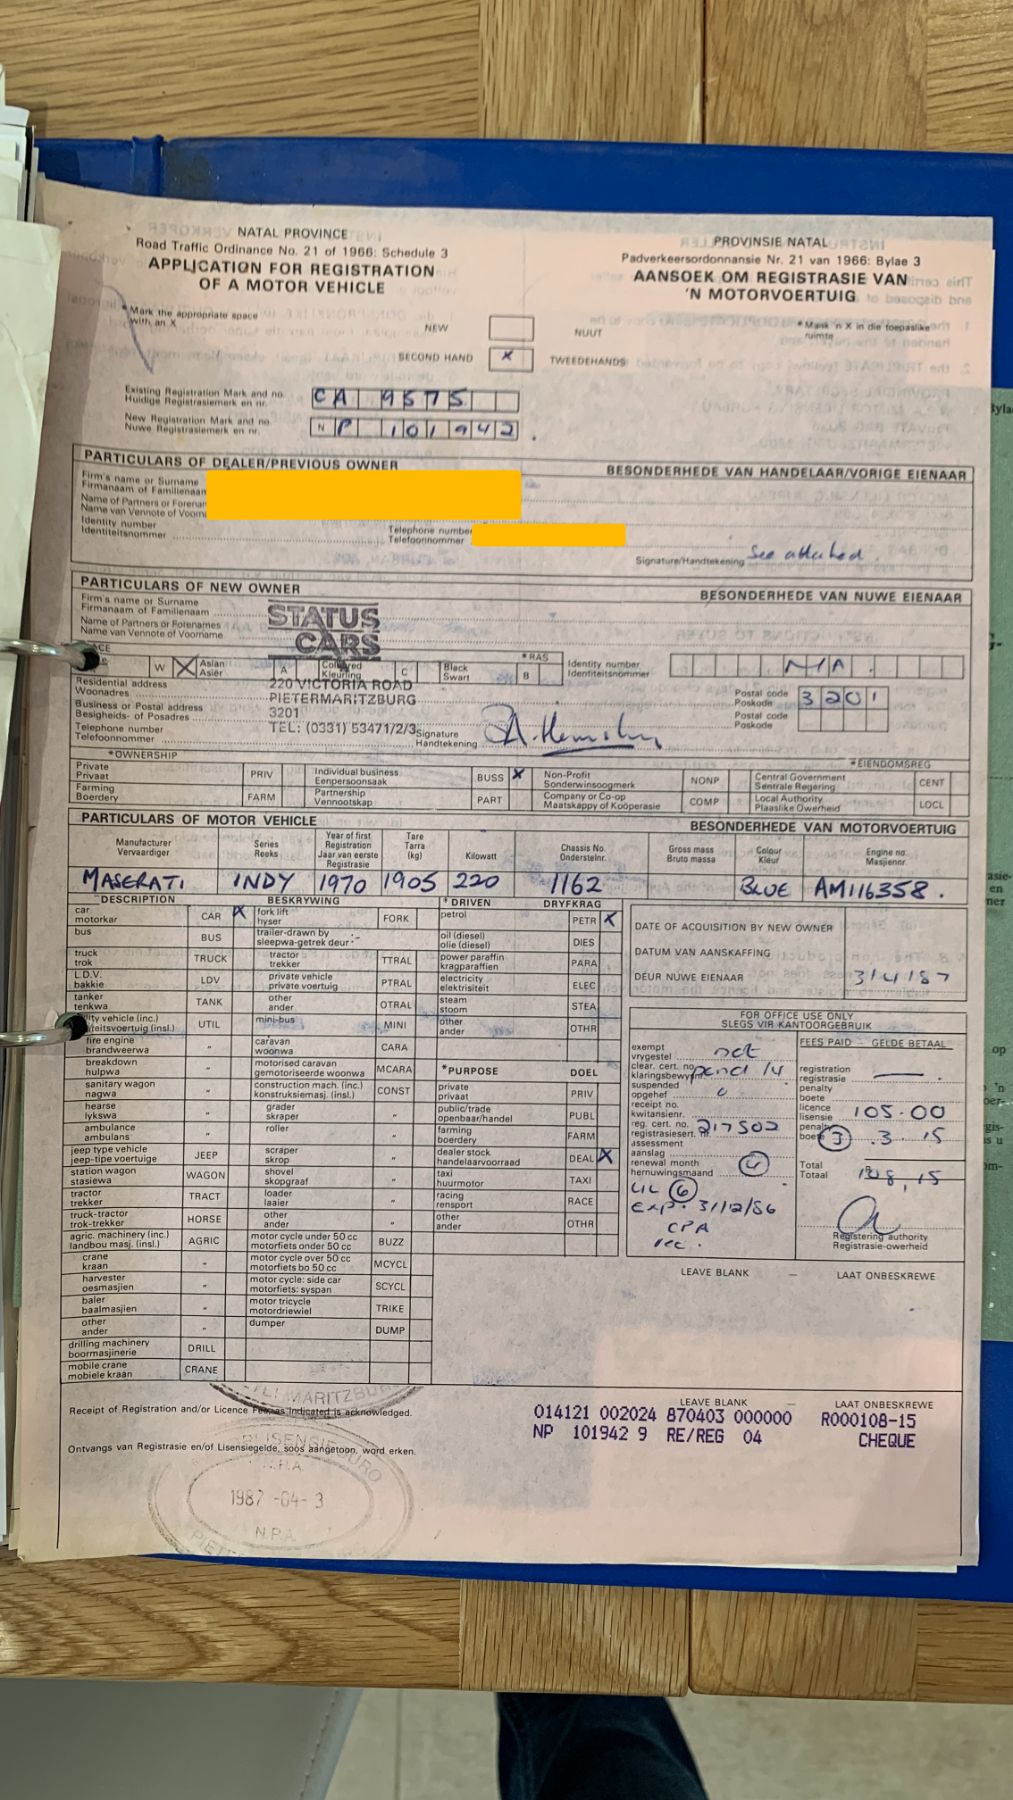 NATAL PROVINCE
Road Traffic Ordinance No. 21 of 1966: Schedule 3
APPLICATION FOR REGISTRATION
OF A MOTOR VEHICLE
PROVINSIE NATAL
Padverkeersordonnansie Nr. 21 van 1966: Bylae 3
AANSOEK OM REGISTRASIE VAN
'N MOTORVOERTUIG
*Mark the appropriate space
with an X
*Merk 'n X in die toepaslike
ruimte
NEW NUUT
SECOND HAND X TWEEDEHANDS
Existing Registration Mark and no.
Huidige Registrasiemerk en nr.
CA 9575
New Registration Mark and no.
Nuwe Registrasiemerk en nr.
NP 101942
PARTICULARS OF DEALER/PREVIOUS OWNER BESONDERHEDE VAN HANDELAAR/VORIGE EIENAAR
Firm's name or Surname
Firmanaam of Familienaam
Name of Partners or Forenam
Name van Vennote of Voorn
Identity number
Identiteitsnommer
Telephone number
Telefoonnommer
Signature/Handtekening See attached.
PARTICULARS OF NEW OWNER BESONDERHEDE VAN NUWE EIENAAR
Firm's name or Surname
Firmanaam of Familienaam
Name of Partners or Forenames
Name van Vennote of Voorname
STATUS
CARS
*RAS
W X Asian Asier A Coloured Kleurling C Black Swart B
Identity number
Identiteitsnommer
N/A.
Residential address
Woonadres
Business or Postal address
Besigheids- of Posadres
Telephone number
Telefoonnommer
220 VICTORIA ROAD
PIETERMARITZBURG
3201
TEL: (0331) 53471/2/3
Signature
Handtekening
Postal code
Poskode
3201
Postal code
Poskode
*OWNERSHIP *EIENDOMSREG
Private Privaat PRIV Individual business Eenpersoonsaak BUSS X Non-Profit Sonderwinsoogmerk NONP Central Government Sentrale Regering CENT
Farming Boerdery FARM Partnership Vennootskap PART Company or Co-op Maatskappy of Kooperasie COMP Local Authority Plaaslike Owerheid LOCL
PARTICULARS OF MOTOR VEHICLE BESONDERHEDE VAN MOTORVOERTUIG
Manufacturer Vervaardiger
Series Reeks
Year of first Registration Jaar van eerste Registrasie
Tare Tarra (kg)
Kilowatt
Chassis No. Onderstelnr.
Gross mass Bruto massa
Colour Kleur
Engine no. Masjiennr.
MASERATI INDY 1970 1905 220 1162 BLUE AM116358.
DESCRIPTION BESKRYWING
car motorkar CAR X
bus BUS
truck trok TRUCK
L.D.V. bakkie LDV
tanker tenkwa TANK
ity vehicle (inc.) eitsvoertuig (insl.) UTIL
fire engine brandweerwa "
breakdown hulpwa "
sanitary wagon nagwa "
hearse lykswa "
ambulance ambulans "
jeep type vehicle jeep-tipe voertuige JEEP
station wagon stasiewa WAGON
tractor trekker TRACT
truck-tractor trok-trekker HORSE
agric. machinery (inc.) landbou masj. (insl.) AGRIC
crane kraan "
harvester oesmasjien "
baler baalmasjien "
other ander "
drilling machinery boormasjinerie DRILL
mobile crane mobiele kraan CRANE
fork lift hyser FORK
trailer-drawn by sleepwa-getrek deur:-
tractor trekker TTRAL
private vehicle private voertuig PTRAL
other ander OTRAL
mini-bus MINI
caravan woonwa CARA
motorised caravan gemotoriseerde woonwa MCARA
construction mach. (inc.) konstruksiemasj. (insl.) CONST
grader skraper "
roller "
scraper skrop "
shovel skopgraaf "
loader laaier "
other ander "
motor cycle under 50 cc motorfiets onder 50 cc BUZZ
motor cycle over 50 cc motorfiets bo 50 cc MCYCL
motor cycle: side car motorfiets: syspan SCYCL
motor tricycle motordriewiel TRIKE
dumper DUMP
*DRIVEN DRYFKRAG
petrol PETR X
oil (diesel) olie (diesel) DIES
power paraffin kragparaffien PARA
electricity elektrisiteit ELEC
steam stoom STEA
other ander OTHR
*PURPOSE DOEL
private privaat PRIV
public/trade openbaar/handel PUBL
farming boerdery FARM
dealer stock handelaarvoorraad DEAL X
taxi huurmotor TAXI
racing rensport RACE
other ander OTHR
DATE OF ACQUISITION BY NEW OWNER
DATUM VAN AANSKAFFING
DEUR NUWE EIENAAR 3/4/87
FOR OFFICE USE ONLY
SLEGS VIR KANTOORGEBRUIK
exempt
vrygestel
clear. cert. no.
klaringsbewys
suspended
opgehef
receipt no.
kwitansienr.
reg. cert. no.
registrasiesert.
217502
assessment
aanslag
renewal month
hernuwingsmaand
4
6
Exp. 31/12/86
FEES PAID - GELDE BETAAL
registration
registrasie
penalty
boete
licence
lisensie
105.00
penalty
boete
3 .3.15
Total
Totaal
108,15
Registering authority
Registrasie-owerheid
LEAVE BLANK — LAAT ONBESKREWE
MARITZBU
Receipt of Registration and/or Licence Fees as indicated is acknowledged.
LEAVE BLANK — LAAT ONBESKREWE
014121 002024 870403 000000 R000108-15
NP 101942 9 RE/REG 04 CHEQUE
Ontvangs van Registrasie en/of Lisensiegelde, soos aangetoon, word erken.
N.P.A.
1987 -04- 3
N.P.A.